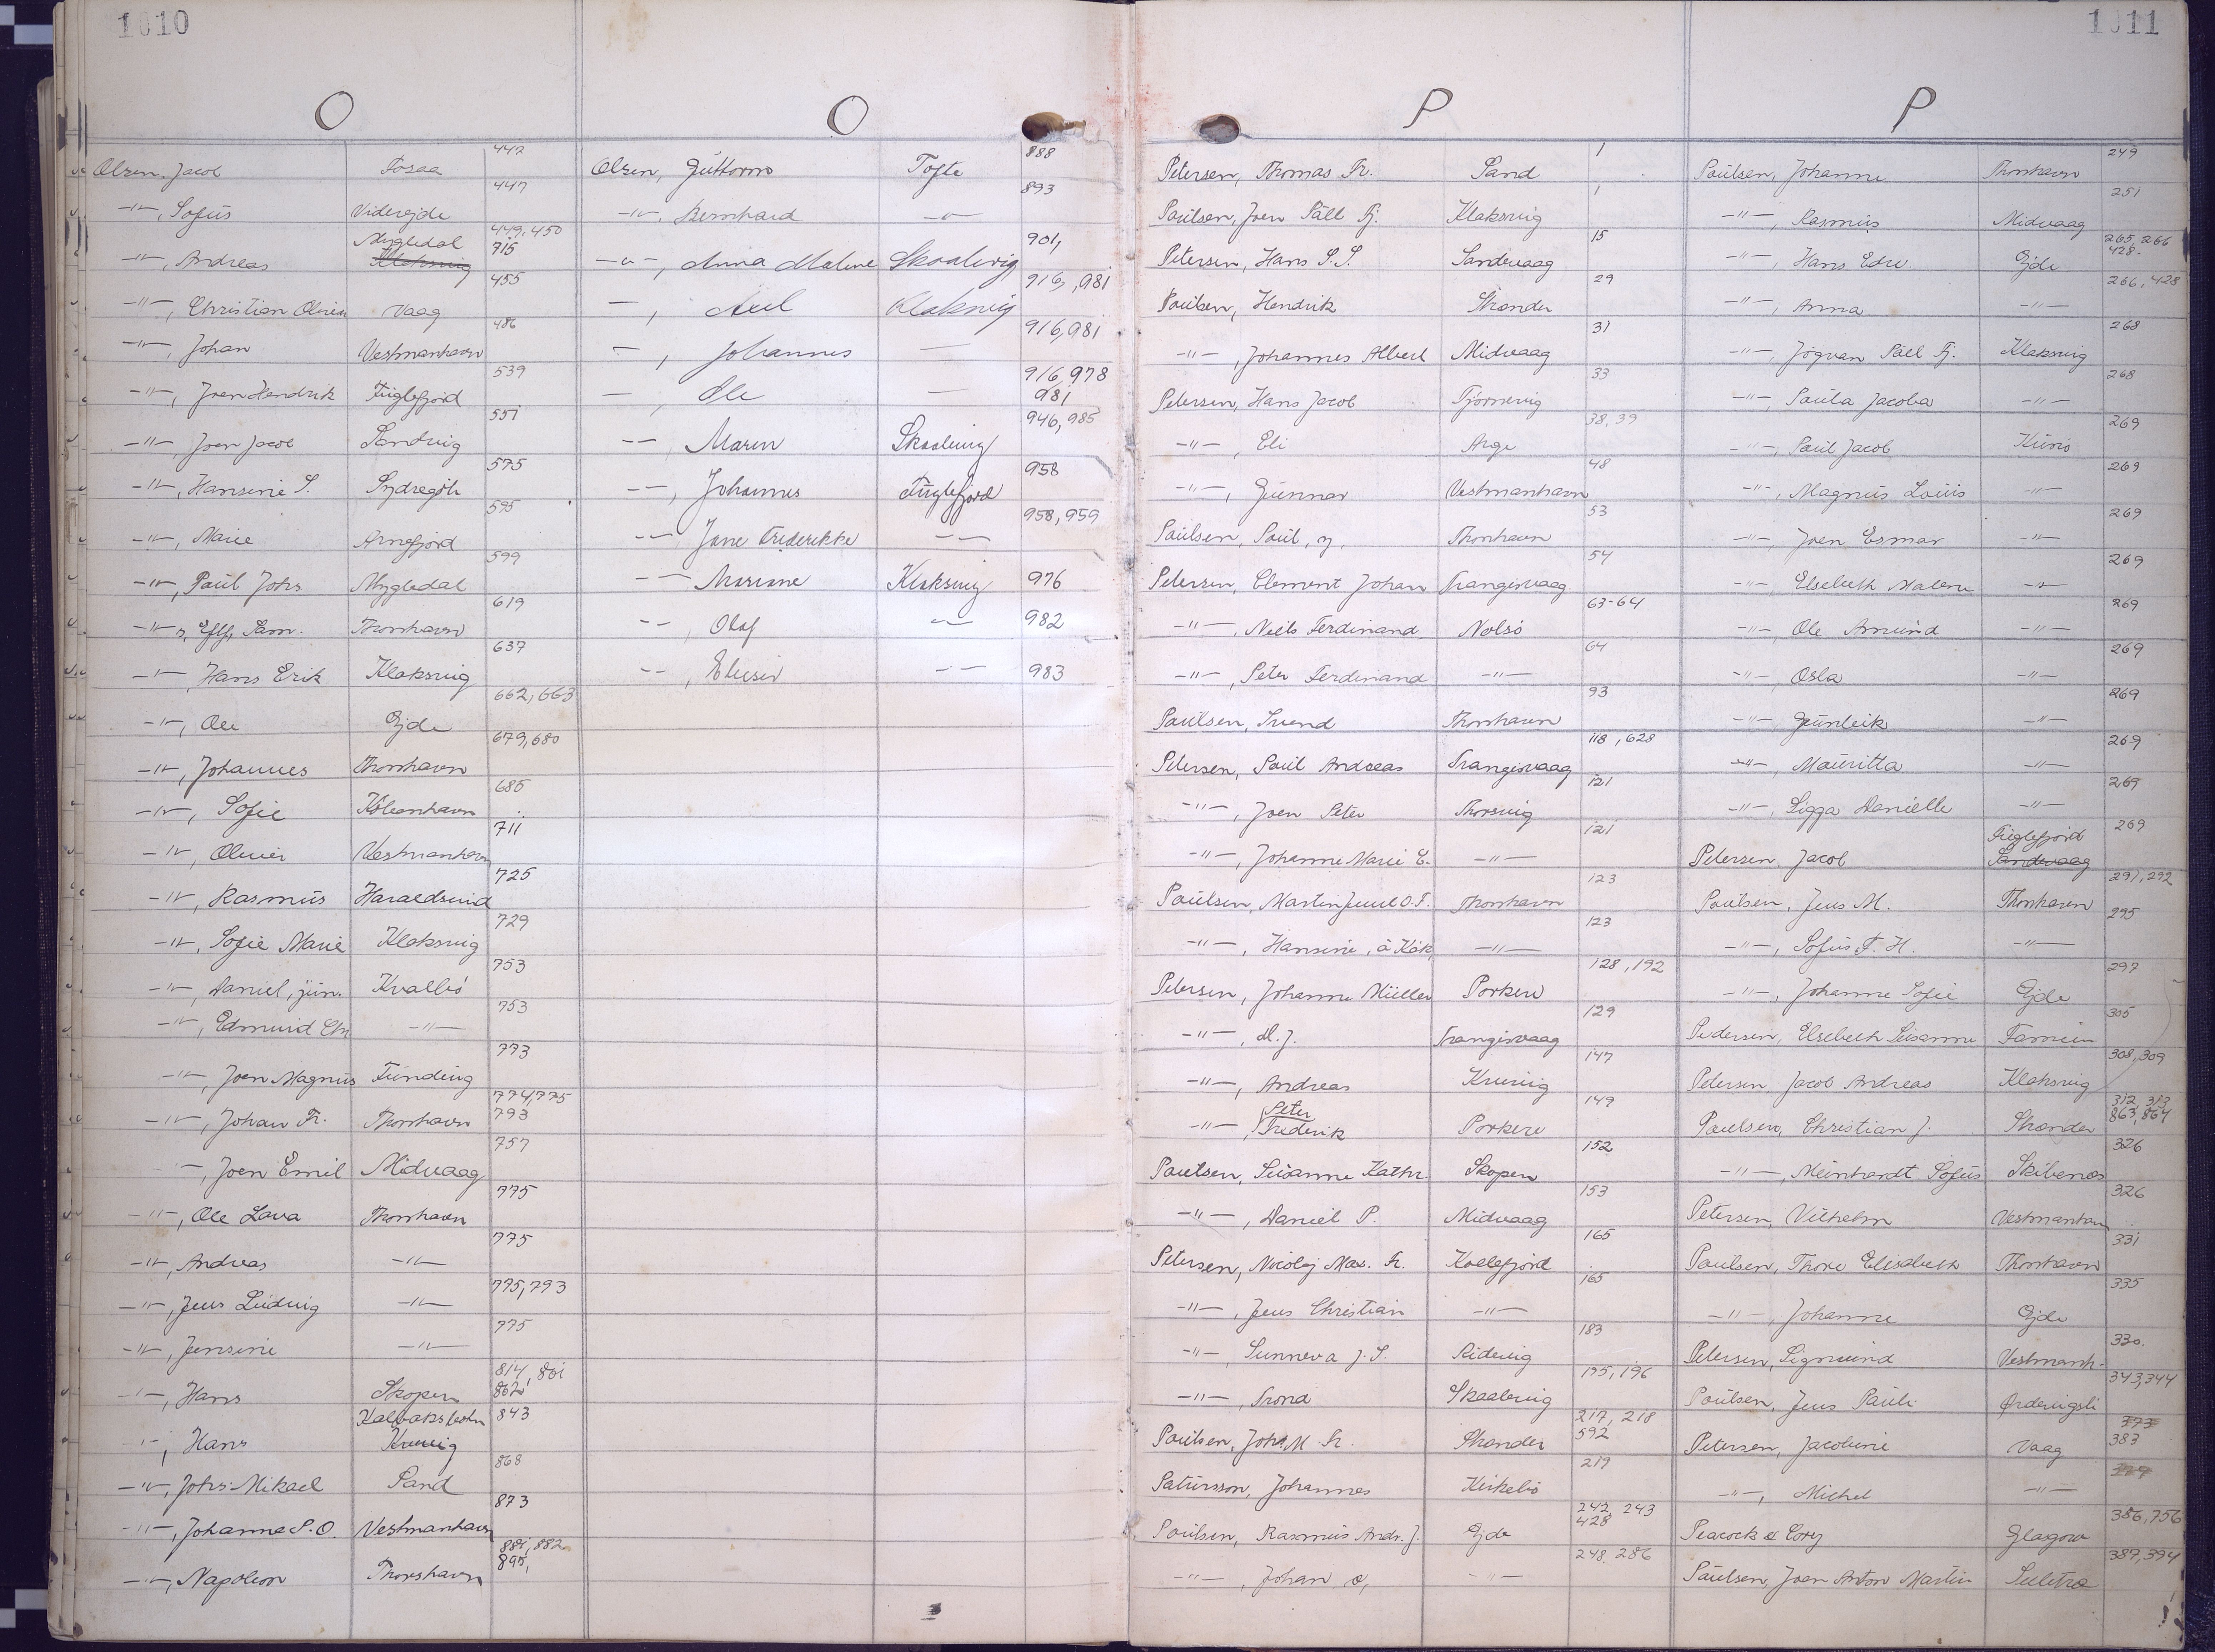 1010
O
O
Olsen, Jacob Fosaa 442
-"-, Sofus Viderejde 447
-"-, Andreas Mygledal Klaksvig 449, 450 715
-"-, Christian Oliver Vaag 455
-"-, Johan Vestmanhavn 486
-"-, Joen Hendrik Fuglefjord 539
-"-, Joen Jacob Sandvig 551
-"-, Hansine S. Sydregöte 575
-"-, Marie Arnefjord 595
-"-, Paul Johs. Mygledal 599
-"- Sam. Thorshavn 619
-"-, Hans Erik Klaksvig 637
-"-, Ole Ejde 662, 663
-"-, Johannes Thorshavn 679, 680
-"-, Sofie Köbenhavn 685
-"-, Oliver Vestmanhavn 711
-"-, Rasmus Haraldsund 725
-"-, Sofie Marie Klaksvig 729
-"-, Daniel, jun. Kvalbö 753
-"-, Edmund Chr. -"- 753
-"-, Joen Magnus Funding 773
-"-, Johan Fr. Thorshavn 774, 775 793
-"-, Joen Emil Midvaag 757
-"-, Ole Lava Thorshavn 775
-"-, Andreas -"- 775
-"-, Jens Ludvig -"- 775, 793
-"-, Jensine -"- 775
-"-, Hans Skopen 814, 801 802
-"-, Hans Kalbaksbotn Kvivig 843
-"-, Johs. Mikael Sand 868
-"-, Johanne S. O. Vestmanhavn 873
-"-, Napoleon Thorshavn 881, 882 895,
Olsen, Guttorm Tofte 888
-"-, Bernhard -"- 893
-"-, Anna Malene Skaalevig 901,
-, Klaksvig 916, 981
-, Johannes - 916, 981
-, Ole - 916, 978 981
--, Maren Skaalevig 946, 985
--, Johannes Fuglefjord 958
-- Jane Frederikke -- 958, 959
-- Mariane Klaksvig 976
--, Olaf -- 982
--, Elieser -- 983
1011
P
P
Petersen, Thomas Fr. Sand 1
Paulsen, Joen Páll Fj. Klaksvig 1
Petersen, Hans S. S. Sandevaag 15
Paulsen, Hendrik Strender 29
-"-, Johannes Albert Midvaag 31
Petersen, Hans Jacob Tjörnevig 33
-"-, Eli Arge 38, 39
-"-, Gunnar Vestmanhavn 48
Paulsen, Paul, Thorshavn 53
Petersen, Clement Johan Trangisvaag 54
-"-, Niels Ferdinand Nolsö 63-64
-"-, Peter Ferdinand -"- 64
Paulsen, Svend Thorshavn 93
Petersen, Paul Andreas Trangisvaag 118, 628
-"-, Joen Peter Thorsvig 121
-"-, Johanne Marie E. -"- 121
Paulsen, Martin Juul O. F. Thorshavn 123
-"-, Hansine, á Kák, -"- 123
Petersen, Johanne Müller Porkere 128, 192
-"-, M. J. Trangisvaag 129
-"-, Andreas Kvivig 147
-"-, Peter Frederik Porkere 149
Poulsen, Susanne Kathr. Skopen 152
-"-, Daniel P. Midvaag 153
Petersen, Nicolaj Max. Fr. Kollefjord 165
-"-, Jens Christian -"- 165
-"-, Sunneva J. S. Ridevig 183
-"-, Trond Skaalevig 195, 196
Paulsen, Joh. M. Fr. Strender 217, 218 592
Patursson, Johannes Kirkebö 219
Poulsen, Rasmus Andr. J. Ejde 242, 243 428
-"-, Johan -"- 248, 286
Paulsen, Johanne Thorshavn 249
-"-, Rasmus Midvaag 251
-"-, Hans Edv. Ejde 265, 266 428.
-"-, Anna -"- 266, 428
-"-, Jögvan Páll Fj. Klaksvig 268
-"- Paula Jacoba -"- 268
-"-, Paul Jacob Kunö 269
-"-, Magnus Louis -"- 269
-"-, Joen Esmar -"- 269
-"-, Elsebeth Malene -"- 269
-"-, Ole Amund -"- 269
-"-, Osla -"- 269
-"-, Gunleik -"- 269
-"-, Mauritta -"- 269
-"-, Sigga Danielle -"- 269
Petersen, Jacob Fuglefjord Sandevaag 269
Poulsen, Jens M. Thorshavn 291, 292
-"-, Sofus F. H. -"- 295
-"-, Johanne Sofie Ejde 297
Pedersen, Elsebeth Susanne Famien 305
Petersen, Jacob Andreas Klaksvig 308, 309
Poulsen, Christian J. Strender 312, 313 863, 864
-"-, Meinhardt Sofus Skibenæs 326
Petersen, Vilhelm Vestmanhavn 326
Paulsen, Thore Elisabeth Thorshavn 331
-"-, Johanne Ejde 335
Petersen, Sigmund Vestmanh. 330.
Poulsen, Jens Pauli Ördevigsli 343, 344
Petersen, Jacobine Vaag 373 383
-"-, Michel -"-
Peacock & Cory Glasgow 386, 756
Paulsen, Joen Anton Martin Seletræ 387, 394